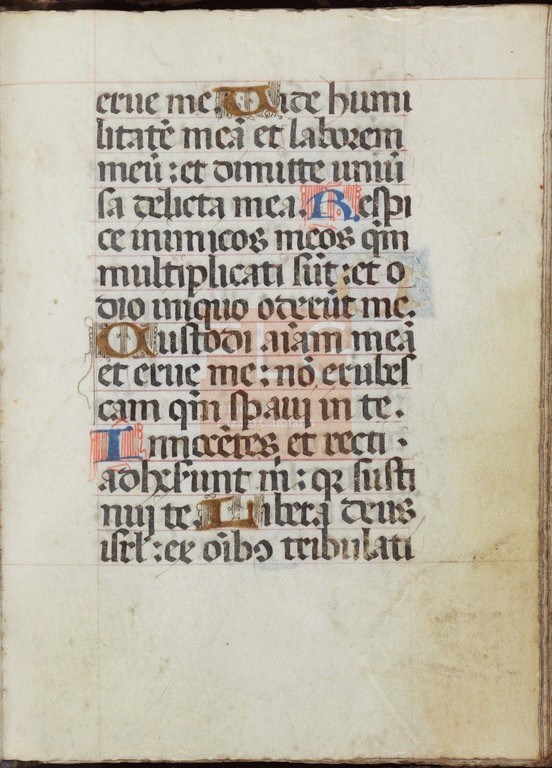 erue me. Uide humi
litatē meā et laborem
meū : et dimitte uniuͥ
sa delicta mea. Respi
ce inimicos meos qm̄
multiplicati sūt : et o
dio iniquo oderūt me.
Custodi aīam meā
et erue me : nō erubes
cam qm̄ speraui in te.
Innocētes et recti
adheserunt m̄ : qr susti
nui te. Libera deus
isrl̄ : ex oībꝯ tribulati